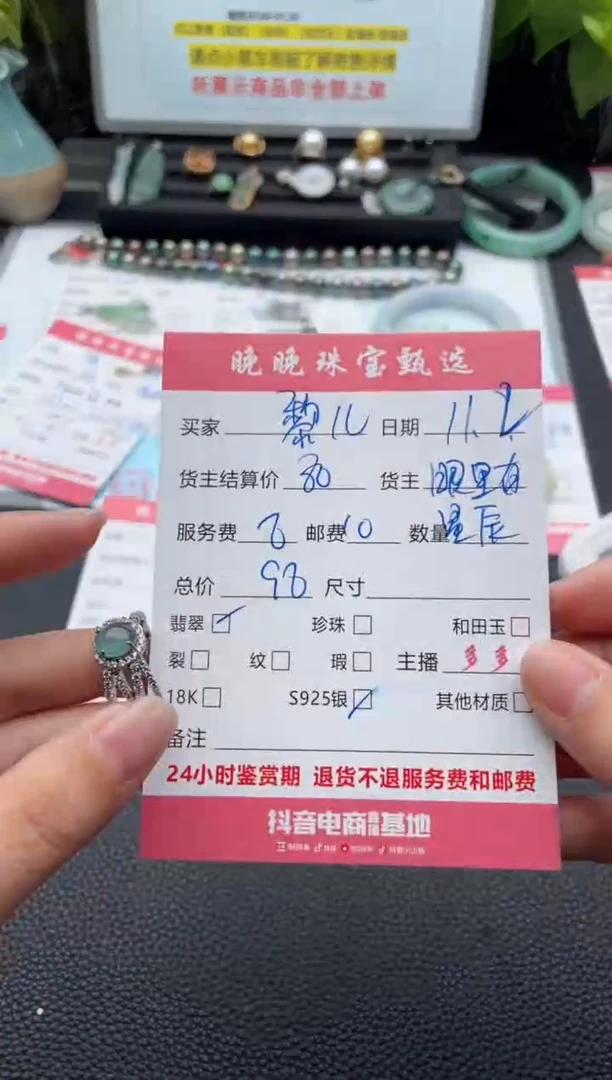 请点小黄车客服了解所售详情
所展示商品非合部上架
晚晚珠宝甄选
买家 黎儿 日期 11.2
货主结算价 80 货主 眼里有
服务费 8 邮费 10 数量 星辰
总价 98 尺寸
翡翠 珍珠 和田玉
裂 纹 瑕 主播 多多
18K S925银 其他材质
备注
24小时鉴赏期 退货不退服务费和邮费
抖音电商直播基地